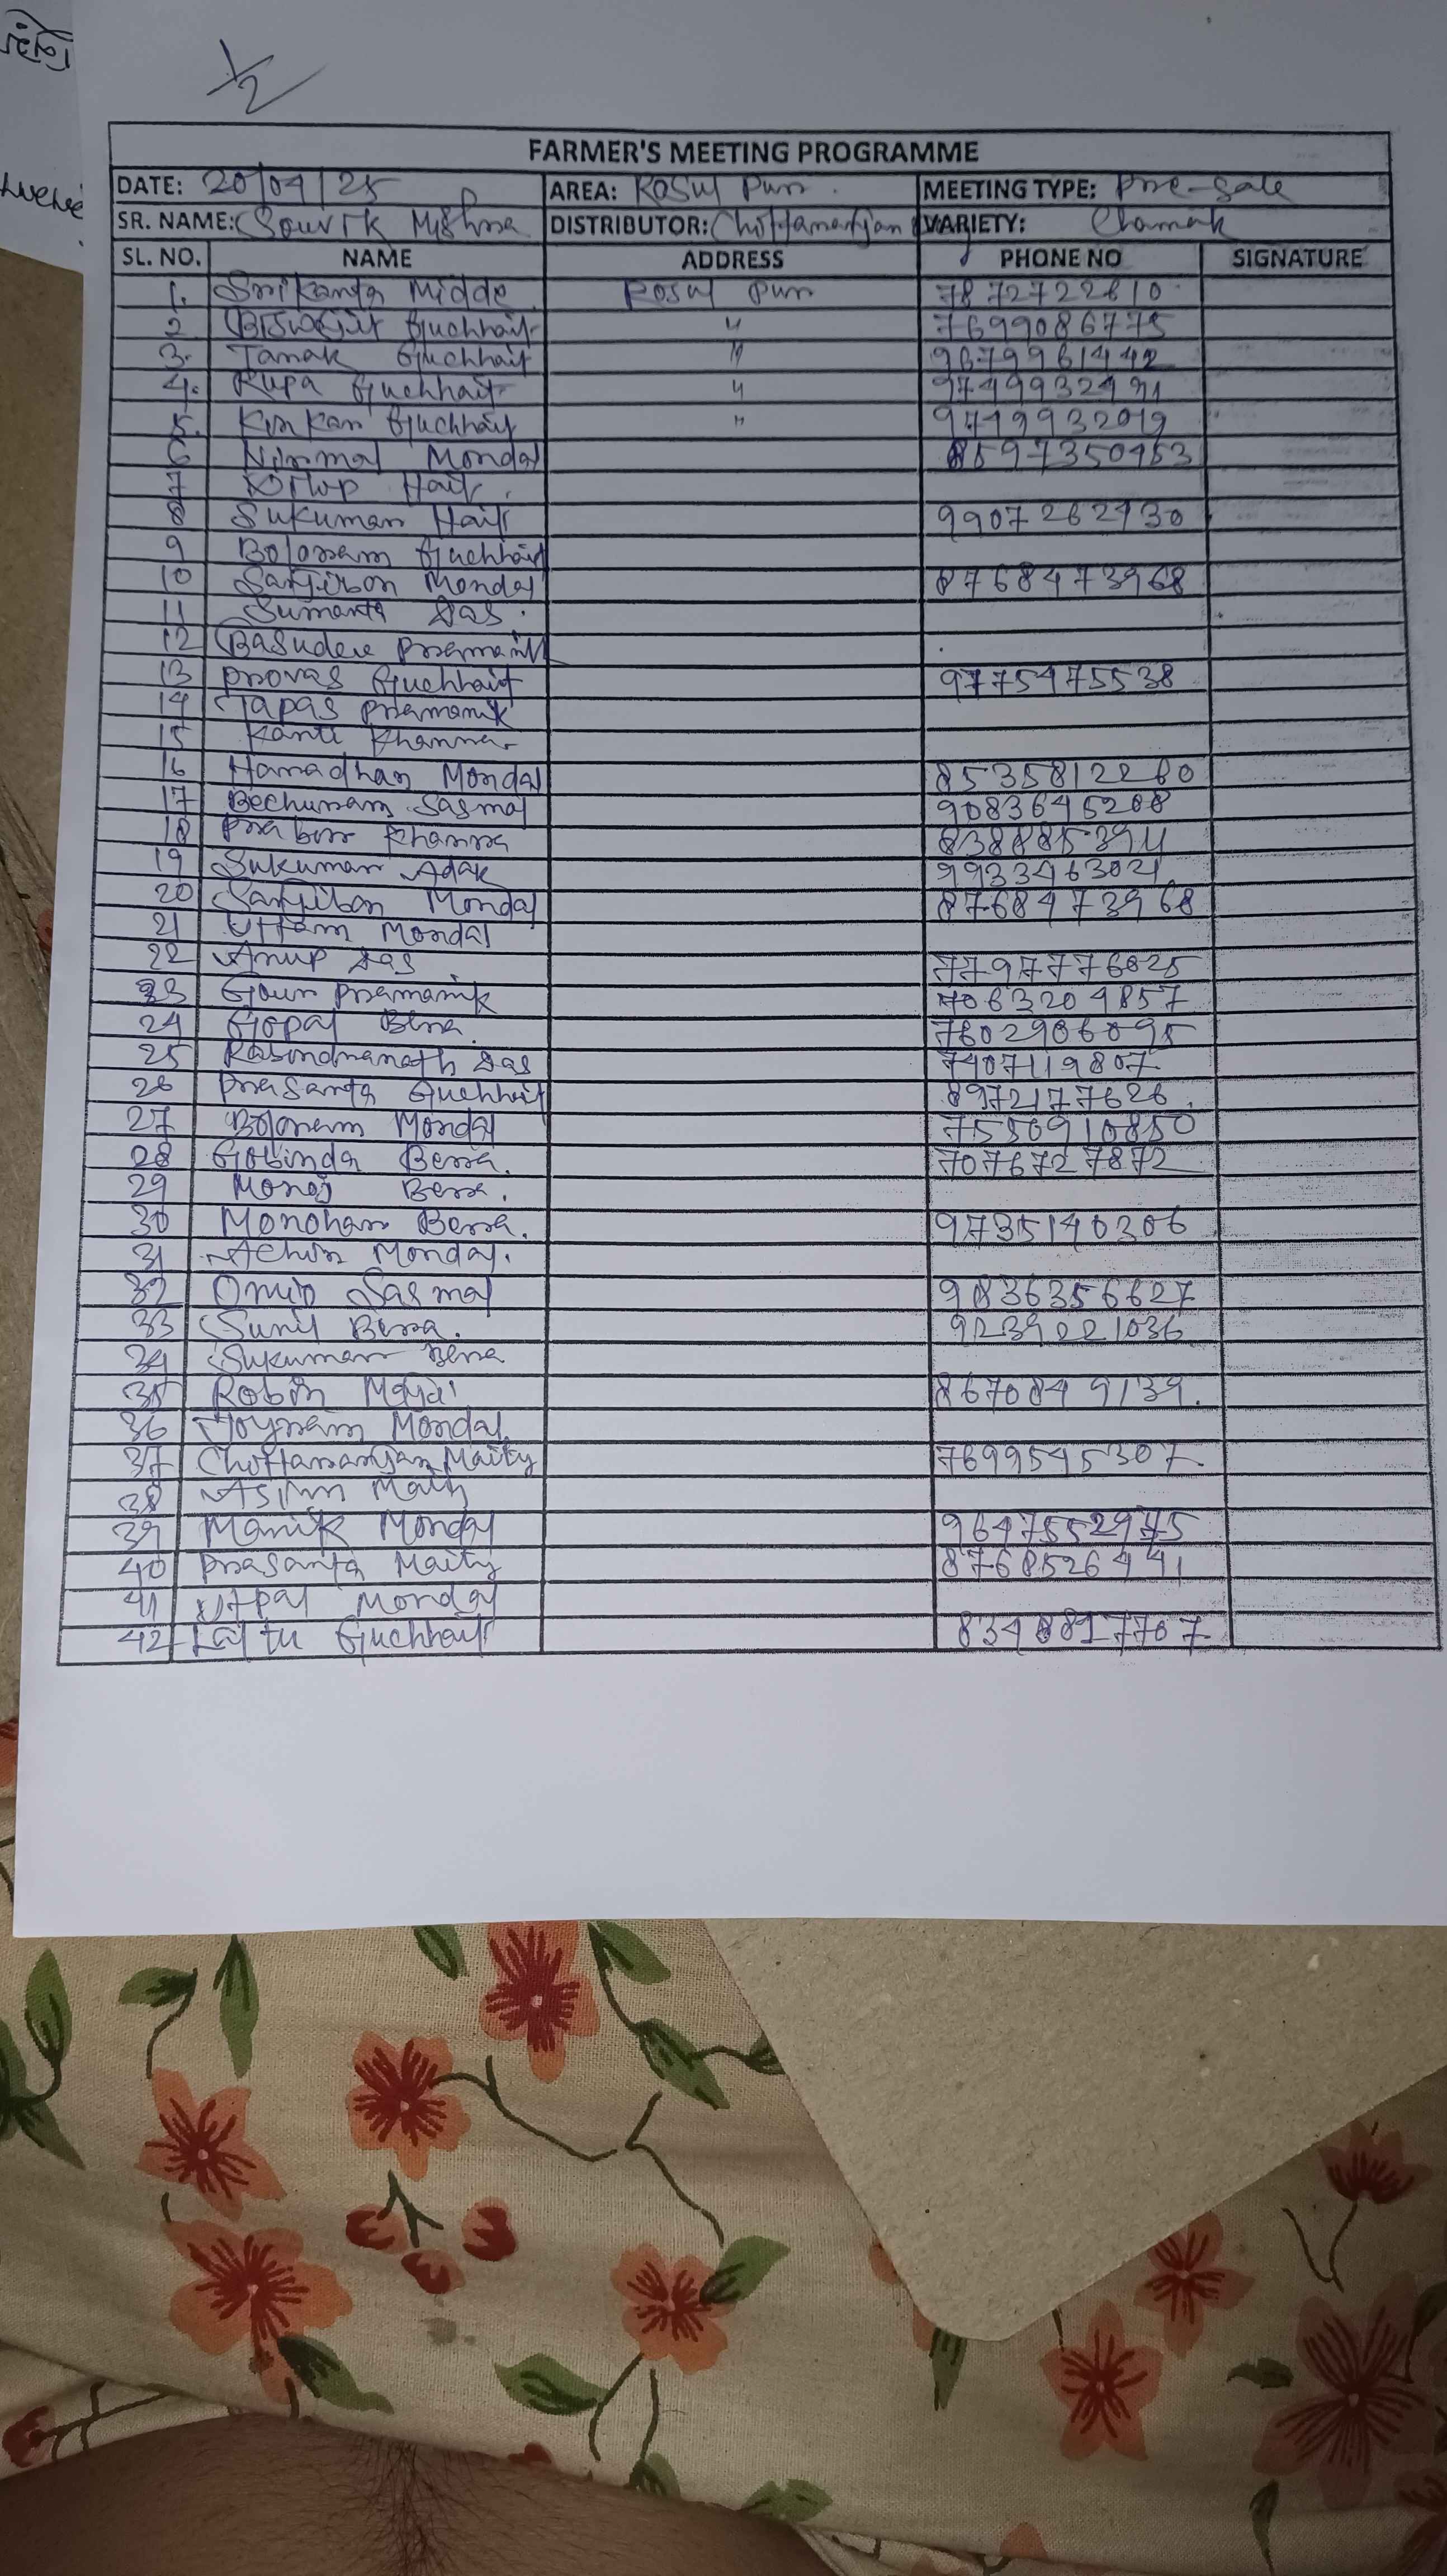 1/2
FARMER'S MEETING PROGRAMME
DATE: 20/04/25 AREA: Rosul Pur MEETING TYPE: Pre-Sale
SR. NAME: Sourik Mishra DISTRIBUTOR: Chittaranjan VARIETY: Chamak
SL. NO. NAME ADDRESS PHONE NO SIGNATURE
1. Srikanta Midde Rosul Pur 7872722610
2 Guchhait " 7699086775
3. Tarak Guchhait " 9679961442
4. Rupa Guchhait " 9749932491
5. Kinkar Guchhait " 9749932019
6 Nirmal Mondal 8597350453
7 Dilip Hait
8 Sukumar Hait 9907262430
9 Bolaram Guchhait
10 Sanjibon Mondal 8768473968
11 Sumanta Das
12 Basudeve Pramanik
13 Provas Guchhait 9775475538
14 Tapas Pramanik
15 Kanti Khanra
16 Haradhan Mondal 8535812260
17 Bechuram Sasmal 9083645208
18 Prabir Khanra
19 Sukumar Adak 9933463021
20 Sanjibon Mondal 8768473968
21 Uttam Mondal
22 Anup Das 7797776825
23 Gour Pramanik 7063204857
24 Gopal Bera 7602906095
25 Rabindranath Das 7407119807
26 Prasanta Guchhait 8972177626
27 Bolaram Mondal 7550910850
28 Gobinda Bera. 7076727872
29 Monoj Bera.
30 Monohar Bera. 9735140306
31 Achin Mondal.
32 Sasmal 9836356627
33 Sunil Bera. 9239221036
34 Sukumar Bera
35 Robin 8670849139.
36 Joyram Mondal.
37 Chittaranjan Maity 7699545307
38 Asim Maity
39 Manik Mondal 9647552975
40 Prasanta Maity 8768526441
41 Utpal Mondal
42 Laltu Guchhait 8348817767